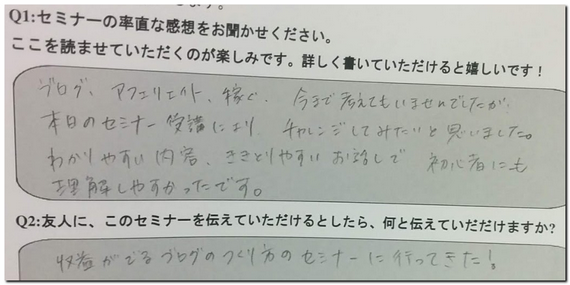 Q1:セミナーの率直な感想をお聞かせください。
ここを読ませていただくのが楽しみです。詳しく書いていただけると嬉しいです！
ブログ、アフェリエイト、稼ぐ、今まで考えてもいませんでしたが、
本日のセミナー受講により、チャレンジしてみたいと思いました。
わかりやすい内容、ききとりやすいお話しで 初心者にも
理解しやすかったです。
Q2:友人に、このセミナーを伝えていただけるとしたら、何と伝えていだだけますか?
収益がでるブログのつくり方のセミナーに行ってきた！